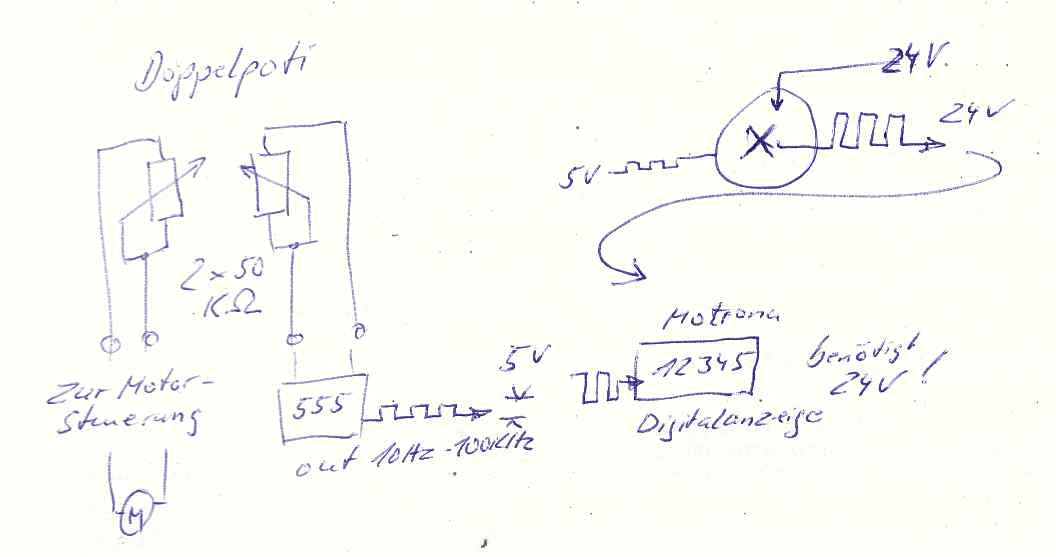 Doppelpoti
24V
24V
5V
2 x 50
KΩ
Motrona
12345
benötigt
24V !
5V
Zur Motor-
Steuerung
555
Digitalanzeige
out 10Hz-100KHz
M